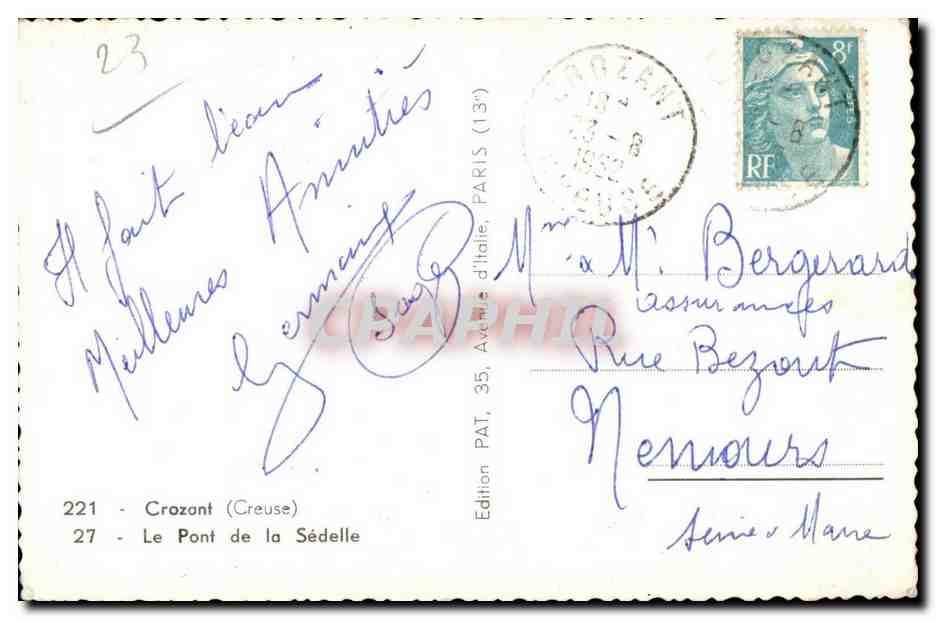 23
Il fait beau
Meilleures Amitiés
221 - Crozant (Creuse)
27 - Le Pont de la Sédelle
Edition PAT, 35, Avenue d'Italie, PARIS (13e)
CPAPHIL
CROZANT
18
23-8
CREUSE
8f
POSTES
RF
Mme & Mr Bergerard
assurances
Rue Bezout
Nemours
Seine & Marne